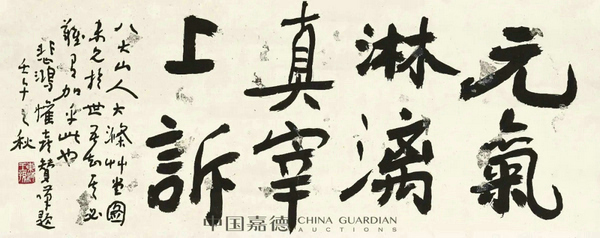 元氣
淋漓
真宰
上訴
八大山人大滌艸堂圖
未見於世吾知其必
難有加乎此也
悲鴻懽喜贊嘆題
壬午之秋
中国嘉德 CHINA GUARDIAN
AUCTIONS